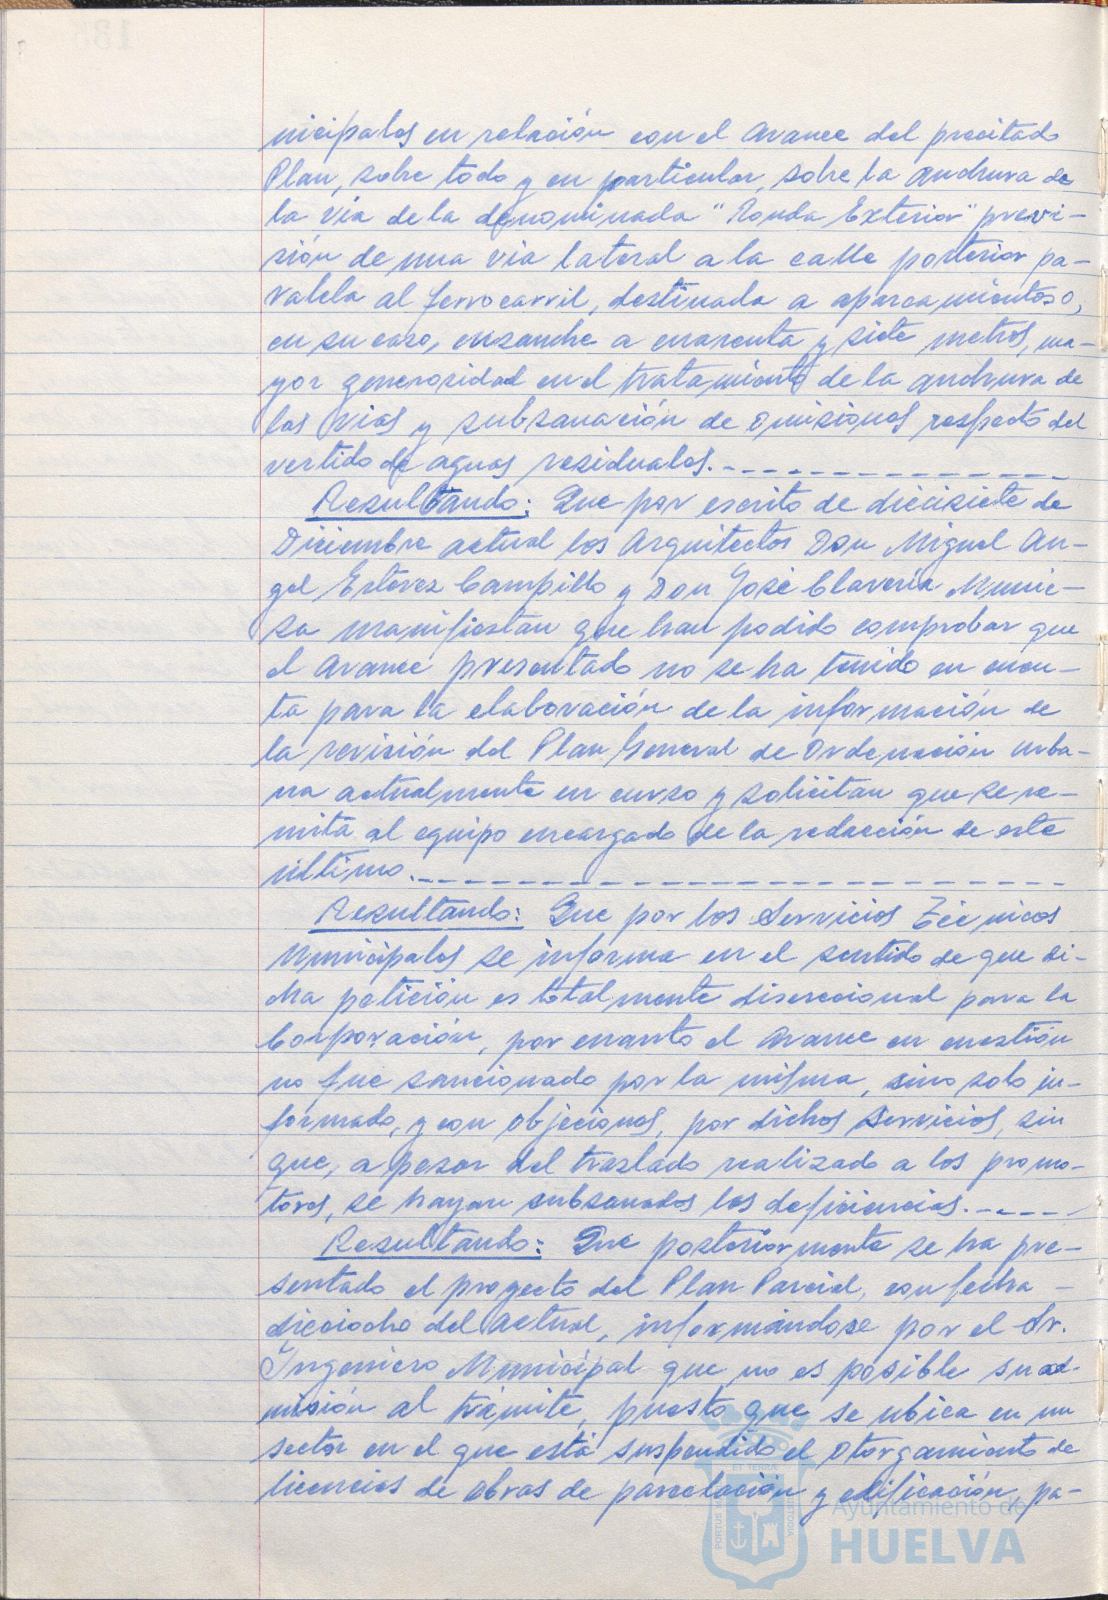 nicipales en relación con el Avance del precitado
Plan, sobre todo y en particular, sobre la anchura de
la via de la denominada "Ronda Exterior" previ-
sión de una via lateral a la calle posterior pa-
ralela al ferrocarril, destinada a aparcamientos o,
en su caso, ensanche a cuarenta y siete metros, ma-
yor generosidad en el tratamiento de la anchura de
las vias y subsanación de omisiones respecto del
vertido de aguas residuales.
Resultando: Que por escrito de diecisiete de
Diciembre actual los Arquitectos Don Miguel An-
gel Estevez Campillo y Don José Claveria Munie-
sa manifiestan que han podido comprobar que
el Avance presentado no se ha tenido en cuen-
ta para la elaboración de la información de
la revisión del Plan General de Ordenación urba-
na actualmente en curso y solicitan que se re-
mita al equipo encargado de la redacción de este
último.
Resultando: Que por los Servicios Técnicos
Municipales se informa en el sentido de que di-
cha petición es totalmente discrecional para la
Corporación, por cuanto el Avance en cuestión
no fue sancionado por la misma, sino solo in-
formado, y con objeciones, por dichos Servicios, sin
que, a pesar del traslado realizado a los promo-
tores, se hayan subsanados las deficiencias.
Resultando: Que posteriormente se ha pre-
sentado el proyecto del Plan Parcial, con fecha
dieciocho del actual, informándose por el Sr.
Ingeniero Municipal que no es posible su ad-
misión al trámite, puesto que se ubica en un
sector en el que está suspendido el otorgamiento de
licencias de obras de parcelación y edificación, pa-
Ayuntamiento de
HUELVA